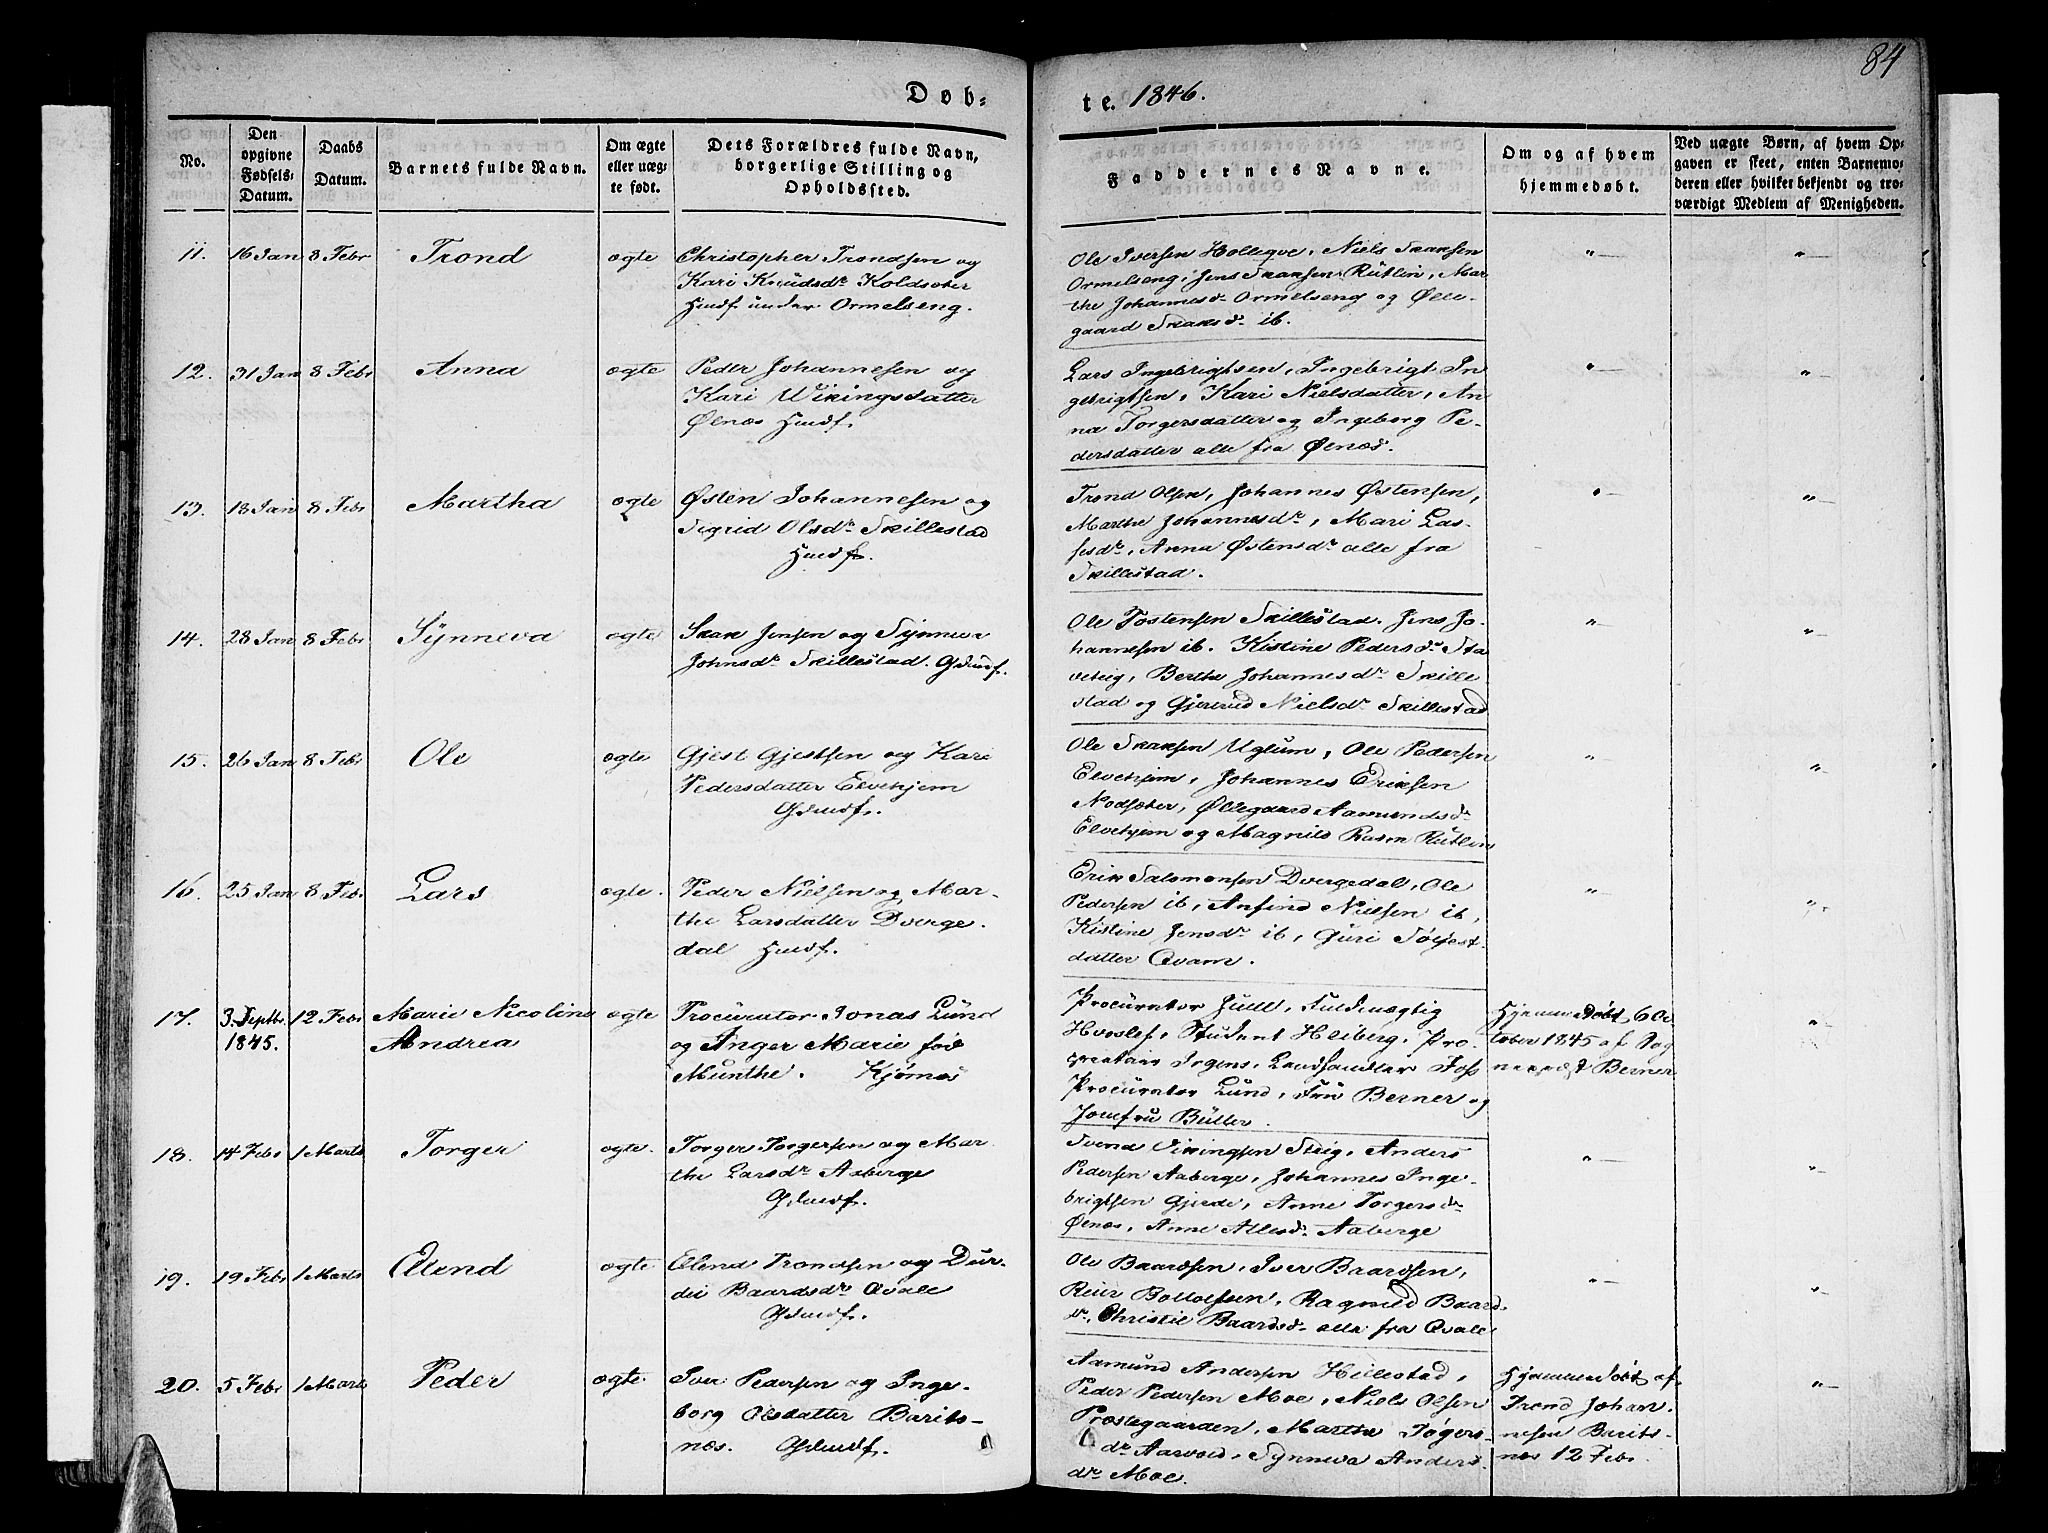 84
Døb-
te. 1846.
No.
Den opgivne Fødsels-Datum.
Daabs Datum.
Barnets fulde Navn.
Om ægte eller uæg-te født.
Dets Forældres fulde Navn, borgerlige Stilling og Opholdssted.
Faddernes Navne.
Om og af hvem hjemmedøbt.
Ved uægte Børn, af hvem Op-gaven er skeet, enten Barnemo-deren eller hvilker bekjendt og tro-værdigt Medlem af Menigheden.
11. 16 Jan 8 Febr Trond ægte
Christopher Trondsen og
Kari Knudsdr Koldsæter
Husf. under Ormelseng.
Ole Iversen Hollegve, Niels Skaksen
Ormelseng, Jens Skaksen Rutlin, Mar-
the Johannesd. Ormelseng og Ølle-
gaard Skaksd. ib.
"—
"—
12. 31 Jan 8 Febr Anna ægte
Peder Johannesen og
Kari Wikingsdatter
Ølnæs Husf.
Lars Ingebrigtsen, Ingebrigt In
gebrigtsen, Kari Nielsdatter, An
na Torgersdatter og Ingeborg Pe-
dersdatter alle fra Ølnæs.
"—
"—
13. 18 Jan 8 Febr Martha ægte
Østen Johannesen og
Sigrid Olsdr Skillestad
Husf.
Trond Olsen, Johannes Østensen,
Marthe Johannesdr, Mari Las-
sesdr, Anna Østensdr alle fra
Skillestad.
"—
"—
14. 28 Jan 8 Febr Synneva ægte
Skak Jensen og Synneva
Johnsdr Skillestad. Gdmdf.
Ole Tostensen Skillestad. Jens Jo-
hannesen ib. Kistine Pedersdr Sta
vehig, Berthe Johannesdr Skille
stad og Gjertrud Nielsdr Skillestad
"—
"—
15. 26 Jan 8 Febr Ole ægte
Gjest Gjestsen og Kari
Pedersdatter Elvehjem
Gdmdf.
Ole Skaksen Uglum, Ole Pedersen
Elvehjem, Johannes Eriksen
Nodsæter, Øllegaard Aamundsdr
Elvehjem og Magnild Rasm Rutlin
"—
"—
16. 25 Jan 8 Febr Lars ægte.
Peder Nielsen og Mar-
the Larsdatter Dverge-
dal Husf.
Erik Salomonsen Dvergedal, Ole
Pedersen ib, Anfind Nielsen ib,
Kistine Jensdr ib, Guri Sølfest-
datter Qvam.
"—
"—
17. 3. Septbr. 1845. 12 Febr Marie Nicoline
Andrea ægte
Procurator Jonas Lund
og Inger Marie fød
Munthe. Kjørnæs
Procurator Juul, Fuldmægtig
Hvoslef, Student Heiberg, Pro-
Irgens, Landhandler Foss
Procurator Lund, Fru Berner og
Jomfru Büller.
Hjemmedøbt 6 Oc
tober 1845 af Sog
nepræst Berner
"—
18. 14 Febr 1 Marts Torger ægte.
Torger Torgersen og Mar
the Larsdr Aaberge
Gdmdf.
Svend Vikingsen Steig, Anders
Pedersen Aaberge, Johannes Inge-
brigtsen Gjerde, Anne Torgersdr
Ølnæs, Anne Atlesdr Aaberge
"—
"—
19. 19 Febr 1 Marts Elend ægte
Elend Trondsen og Dur-
dei Baardsdr Qvale
Gdmdf.
Ole Baardsen, Iver Baardsen,
Reier Botolfsen, Ragnild Baard
dr, Christie Baardsdr alle fra Qvale
"—
"—
20. 5 Febr 1 Marts Peder ægte
Iver Pedersen og Inge-
borg Olsdatter Barits-
næs. Gdmdf.
Aamund Andersen Hillestad,
Peder Pedersen Moe, Niels Olsen
Præstegaarden, Marthe Søgers-
dr Aarvold, Synneva Anders
dr Moe.
Hjemmedøbt af
Trond Johan-
nesen Barits-
næs 12 Febr
"—